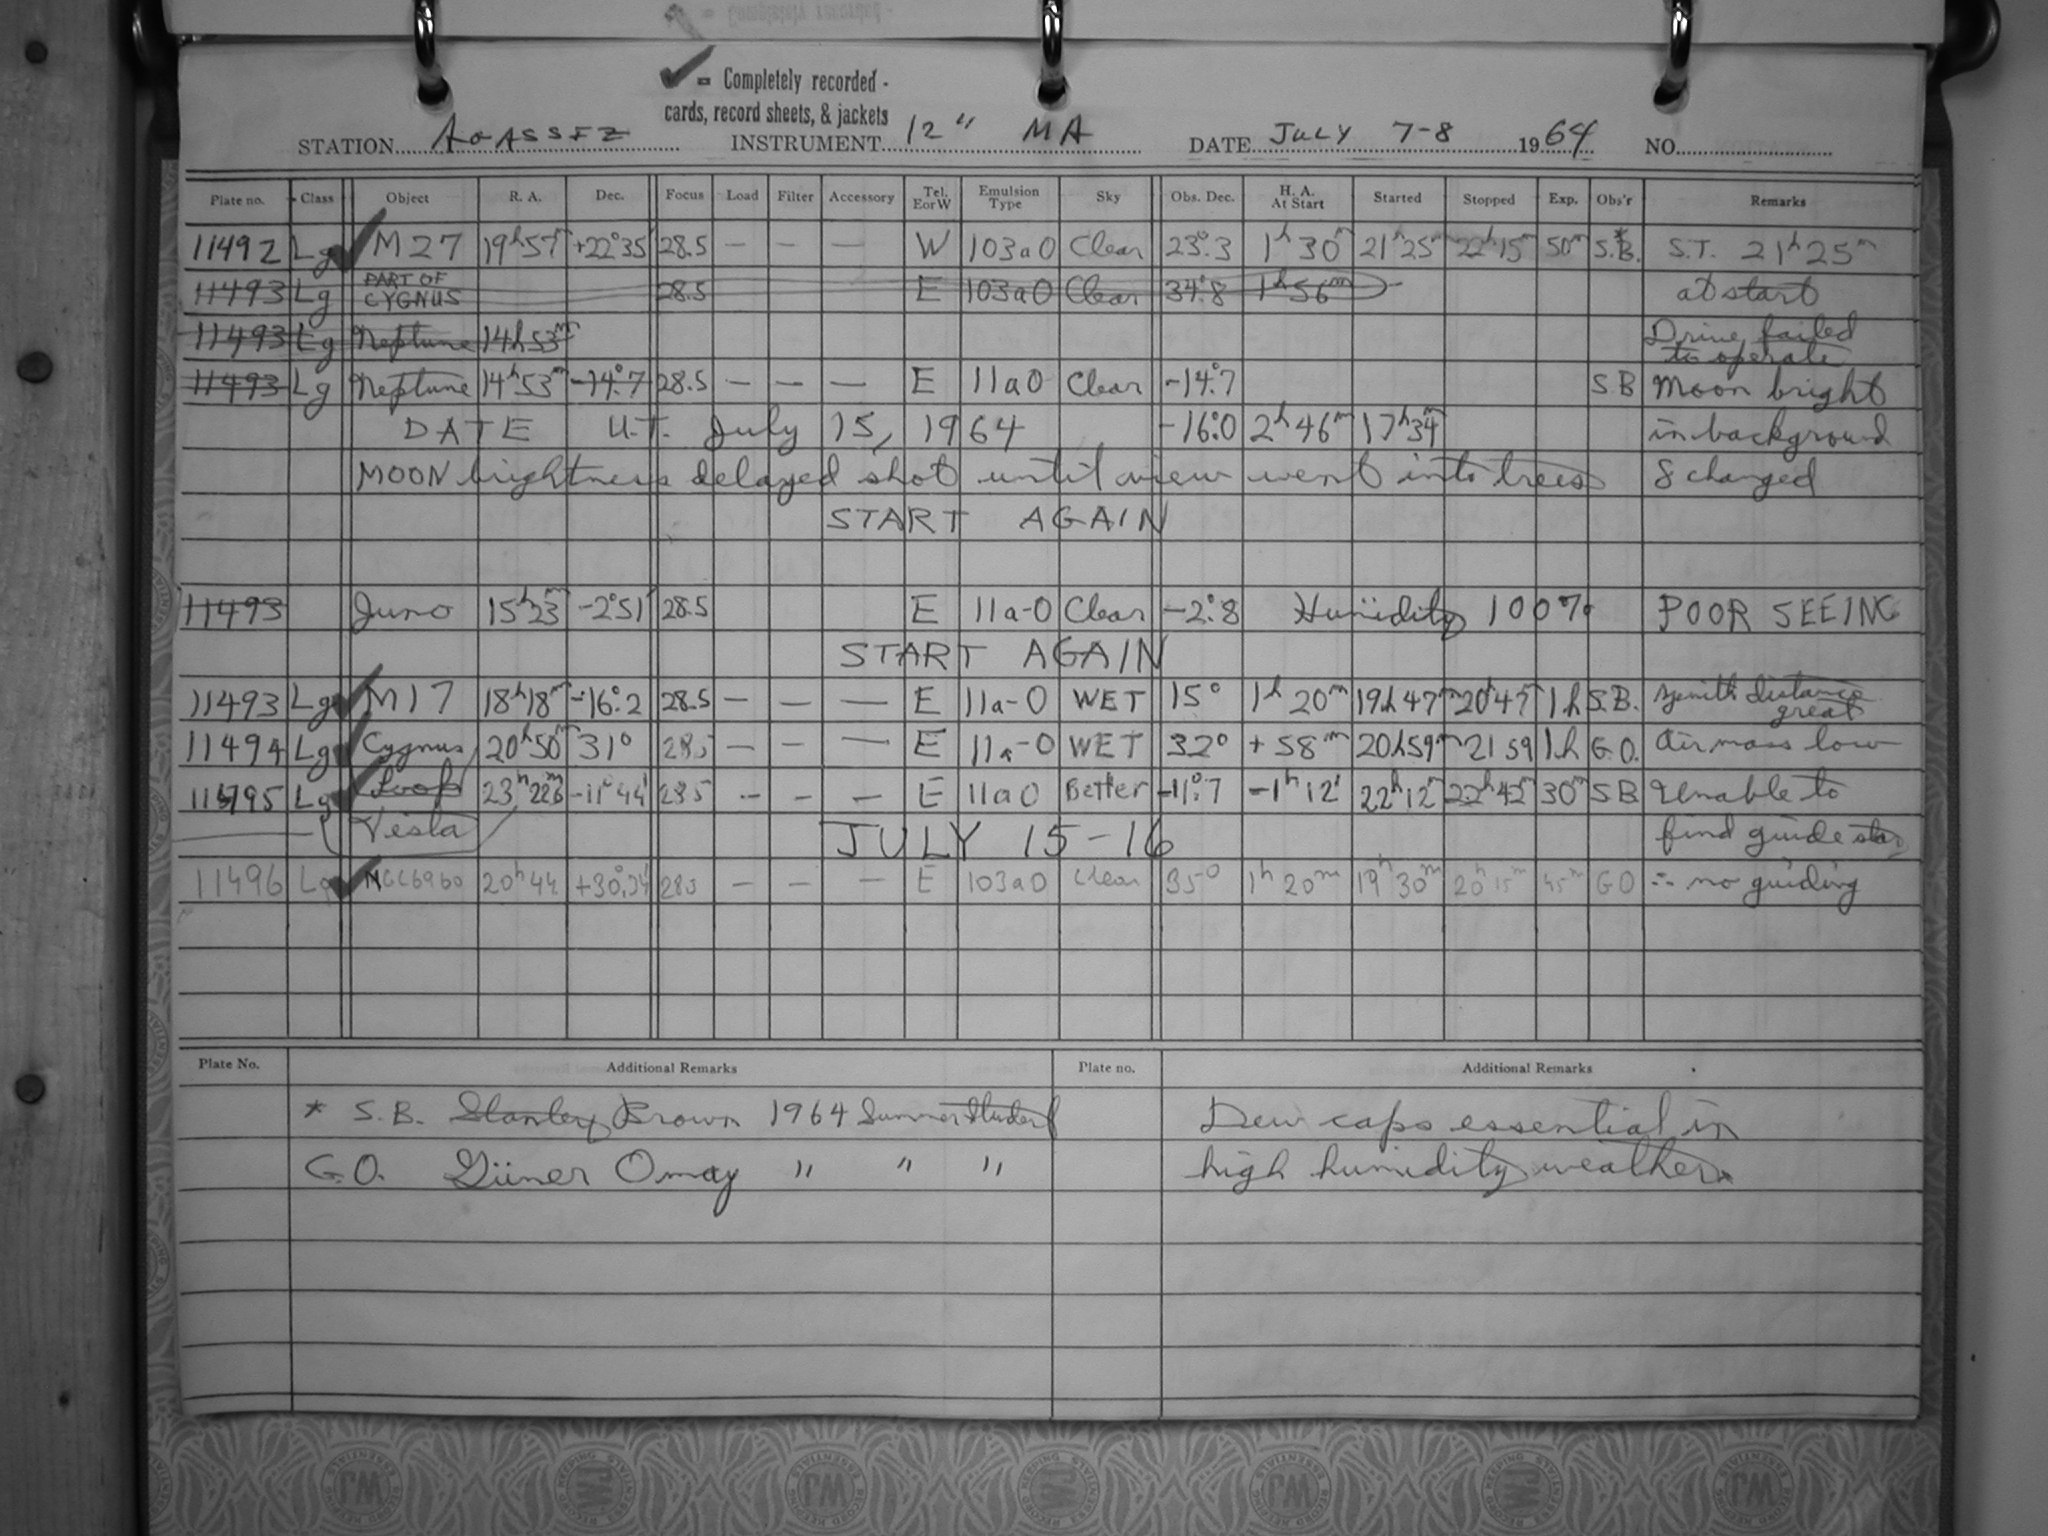 ✓ = Completely recorded -
cards, record sheets, & jackets
STATION AGASSIZ INSTRUMENT 12" MA DATE JULY 7-8 1964 NO.
Plate no. Class Object R. A. Dec. Focus Load Filter Accessory Tel. E or W Emulsion Type Sky Obs. Dec. H. A. At Start Started Stopped Exp. Obs'r Remarks
11492 Lg ✓ M27 19h57m +22°35' 28.5 — — — W 103a0 Clear 23°.3 1h30m 21h25m 22h15m 50m S.B.* S.T. 21h25m
11493 Lg PART OF CYGNUS 28.5 E 103a0 Clear 34°.8 1h56m at start
11493 Lg Neptune 14h53m Drive failed to operate
11493 Lg Neptune 14h53m -14°.7 28.5 — — — E 11a0 Clear -14°.7 S.B Moon bright
DATE U.T. July 15, 1964 -16°.0 2h46m 17h34m in background
MOON brightness delayed shot until view went into trees & changed
START AGAIN
11493 Juno 15h23m -2°51' 28.5 E 11a-0 Clear -2°.8 Humidity 100% POOR SEEING
START AGAIN
11493 Lg ✓ M17 18h18m -16°.2 28.5 — — — E 11a-0 WET 15° 1h20m 19h47m 20h47m 1h S.B. zenith distance great
11494 Lg ✓ Cygnus 20h50m 31° 28.5 — — — E 11a-0 WET 32° +58m 20h59m 2159 1h G.O. Air mass low
11495 Lg ✓ Loop 23h22.6m -11°44' 28.5 — — — E 11a0 Better -11°.7 -1h12' 22h12m 22h42m 30m S B Unable to
Vesta JULY 15-16 find guide star
11496 Lg ✓ NGC6960 20h44 +30°.34' 28.5 — — — E 103a0 Clear 35° 1h20m 19h30m 20h15m 45m G O ∴ no guiding
Plate No. Additional Remarks Plate no. Additional Remarks
* S.B. Stanley Brown 1964 Summer Student Dew caps essential in
G.O. Güner Omay " " " high humidity weather.